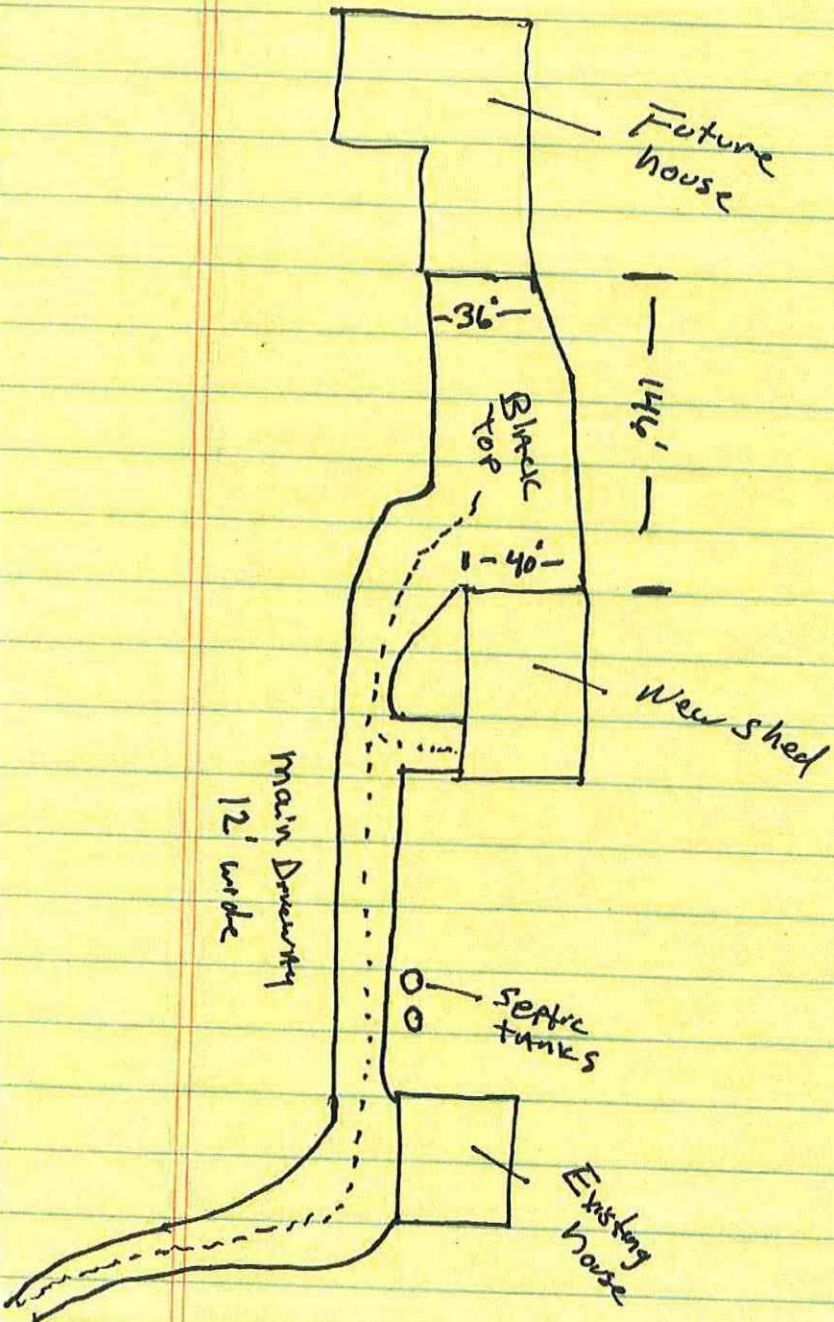 Future
house
-36'-
146'
Black
top
-40'-
New shed
main Driveway
12' wide
septic
tanks
Existing
house